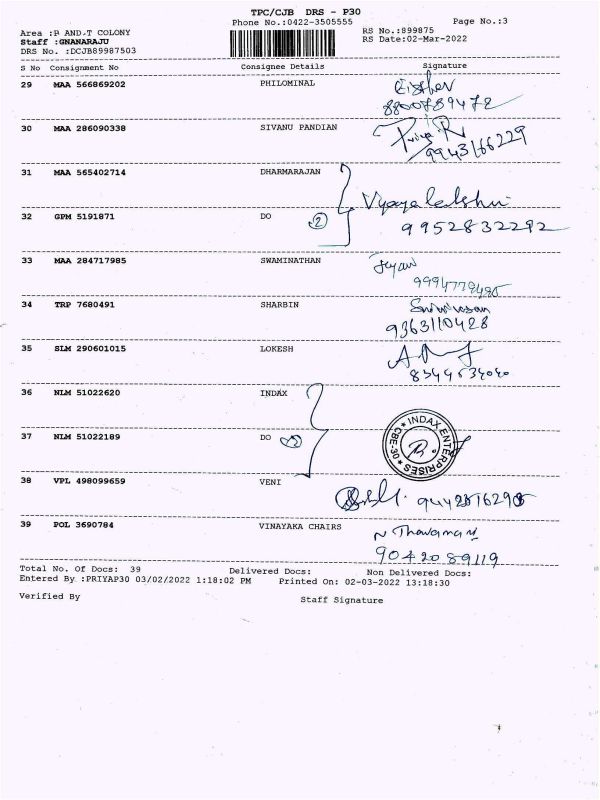 TPC/CJB DRS - P30
Phone No.:0422-3505555 Page No.:3
Area :P AND.T COLONY RS No.:899875
Staff :GNANARAJU RS Date:02-Mar-2022
DRS No. :DCJB89987503
S No Consignment No Consignee Details Signature
29 MAA 566869202 PHILOMINAL Esther
8800789472
30 MAA 286090338 SIVANU PANDIAN Priya R
9943166229
31 MAA 565402714 DHARMARAJAN
Vijayalakshmi
32 GPM 5191871 DO 2 9952832292
33 MAA 284717985 SWAMINATHAN
34 TRP 7680491 SHARBIN Srinivasan
9363110428
35 SLM 290601015 LOKESH
36 NLM 51022620 INDAX
INDAX ENTERPRISES CBE-30
37 NLM 51022189 DO
38 VPL 498099659 VENI
39 POL 3690784 VINAYAKA CHAIRS
9042089119
Total No. Of Docs: 39 Delivered Docs: Non Delivered Docs:
Entered By :PRIYAP30 03/02/2022 1:18:02 PM Printed On: 02-03-2022 13:18:30
Verified By Staff Signature